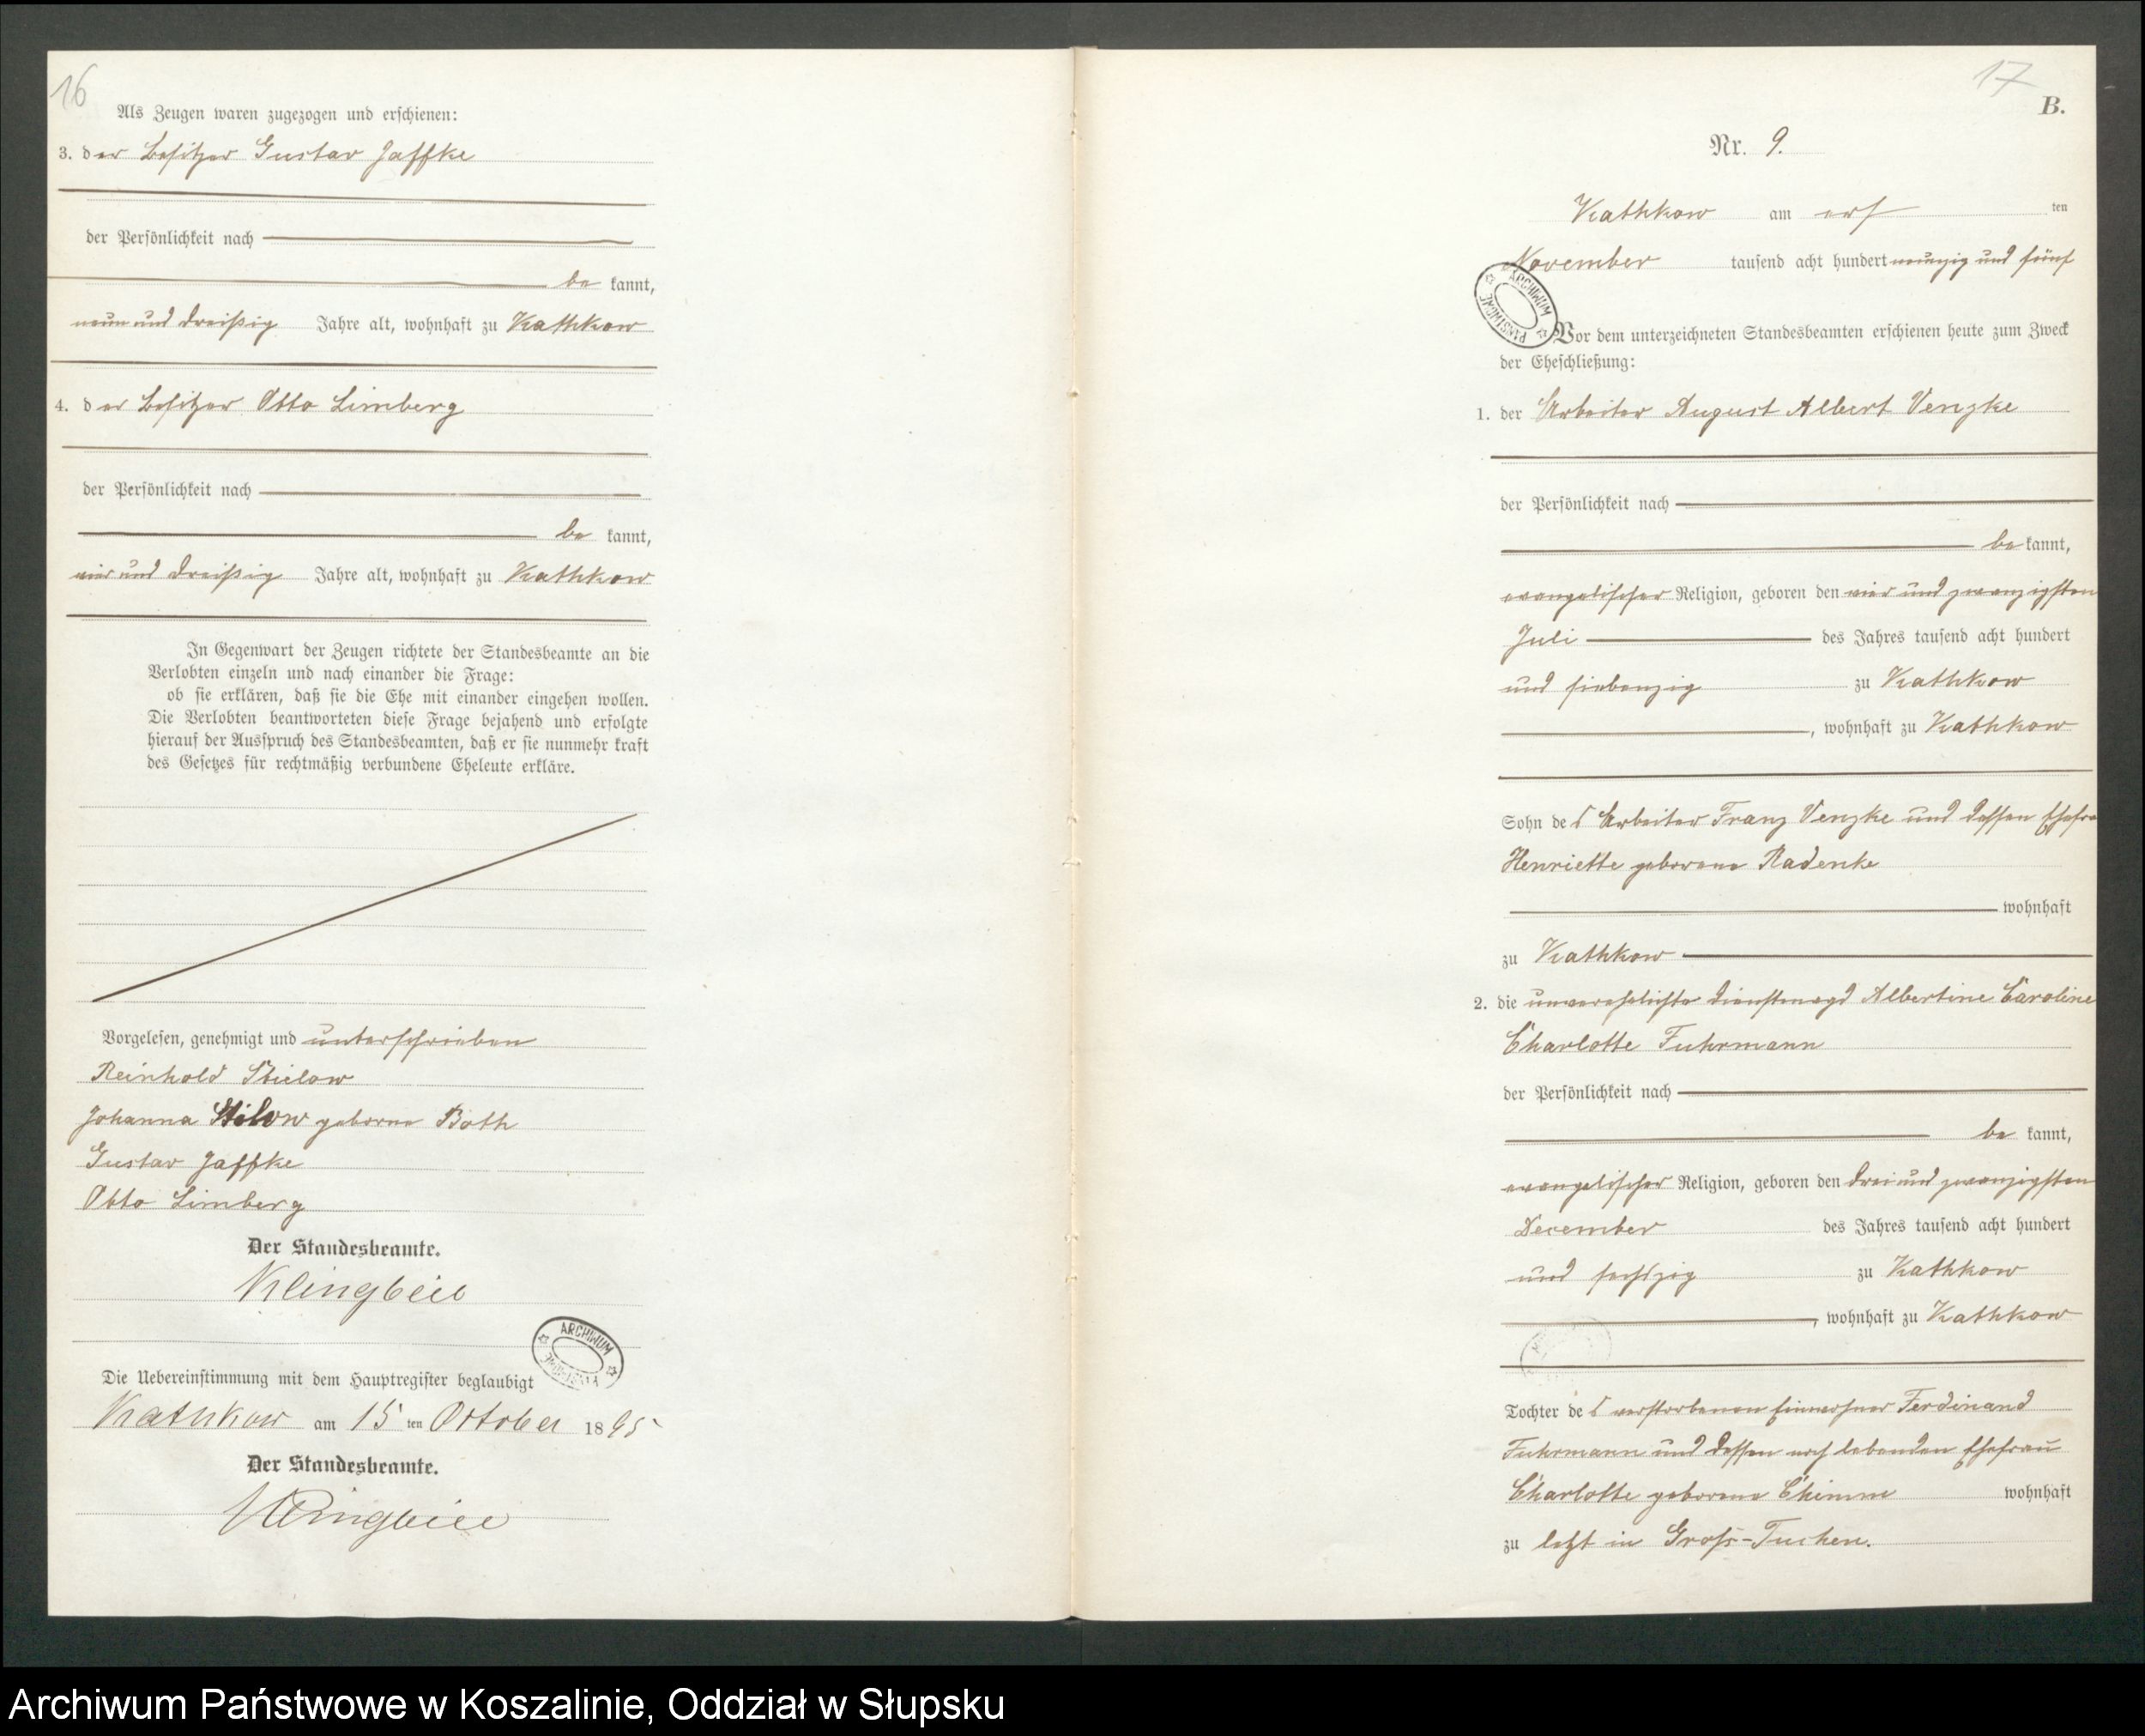 16
Als Zeugen waren zugezogen und erschienen:
3. der Besitzer Gustav Jaffke
der Persönlichkeit nach
be kannt,
neun und dreißig Jahre alt, wohnhaft zu Kathkow
4. der Besitzer Otto Limberg
der Persönlichkeit nach
be kannt,
vier und dreißig Jahre alt, wohnhaft zu Kathkow
In Gegenwart der Zeugen richtete der Standesbeamte an die
Verlobten einzeln und nach einander die Frage:
ob sie erklären, daß sie die Ehe mit einander eingehen wollen.
Die Verlobten beantworteten diese Frage bejahend und erfolgte
hierauf der Ausspruch des Standesbeamten, daß er sie nunmehr kraft
des Gesetzes für rechtmäßig verbundene Eheleute erkläre.
Vorgelesen, genehmigt und unterschrieben
Reinhold Stielow
Johanna Stilow geborne Both
Gustav Jaffke
Otto Limberg
Der Standesbeamte.
Klingbeil
ARCHIWUM
Die Uebereinstimmung mit dem Hauptregister beglaubigt
Kathkow am 15 ten October 1895
Der Standesbeamte.
Klingbeil
17
B.
Nr. 9.
Kathkow am ten
November tausend acht hundert neunzig und fünf
ARCHIWUM PAŃSTWOWE
Vor dem unterzeichneten Standesbeamten erschienen heute zum Zweck
der Eheschließung:
1. der Arbeiter August Albert Venzke
der Persönlichkeit nach
be kannt,
evangelischer Religion, geboren den vier und zwanzigsten
Juli des Jahres tausend acht hundert
und siebenzig zu Kathkow
, wohnhaft zu Kathkow
Sohn des Arbeiter Franz Venzke und dessen Ehefra
Henriette geborene Radenke
wohnhaft
zu Kathkow
2. die unverehelichte Dienstmagd Albertine Caroline
Charlotte Fuhrmann
der Persönlichkeit nach
be kannt,
evangelischer Religion, geboren den drei und zwanzigsten
December des Jahres tausend acht hundert
und sechszig zu Kathkow
, wohnhaft zu Kathkow
Tochter des verstorbenen Einwohner Ferdinand
Fuhrmann und dessen noch lebenden Ehefrau
Charlotte geborene wohnhaft
zu letzt in Groß-Tuchen.
Archiwum Państwowe w Koszalinie, Oddział w Słupsku